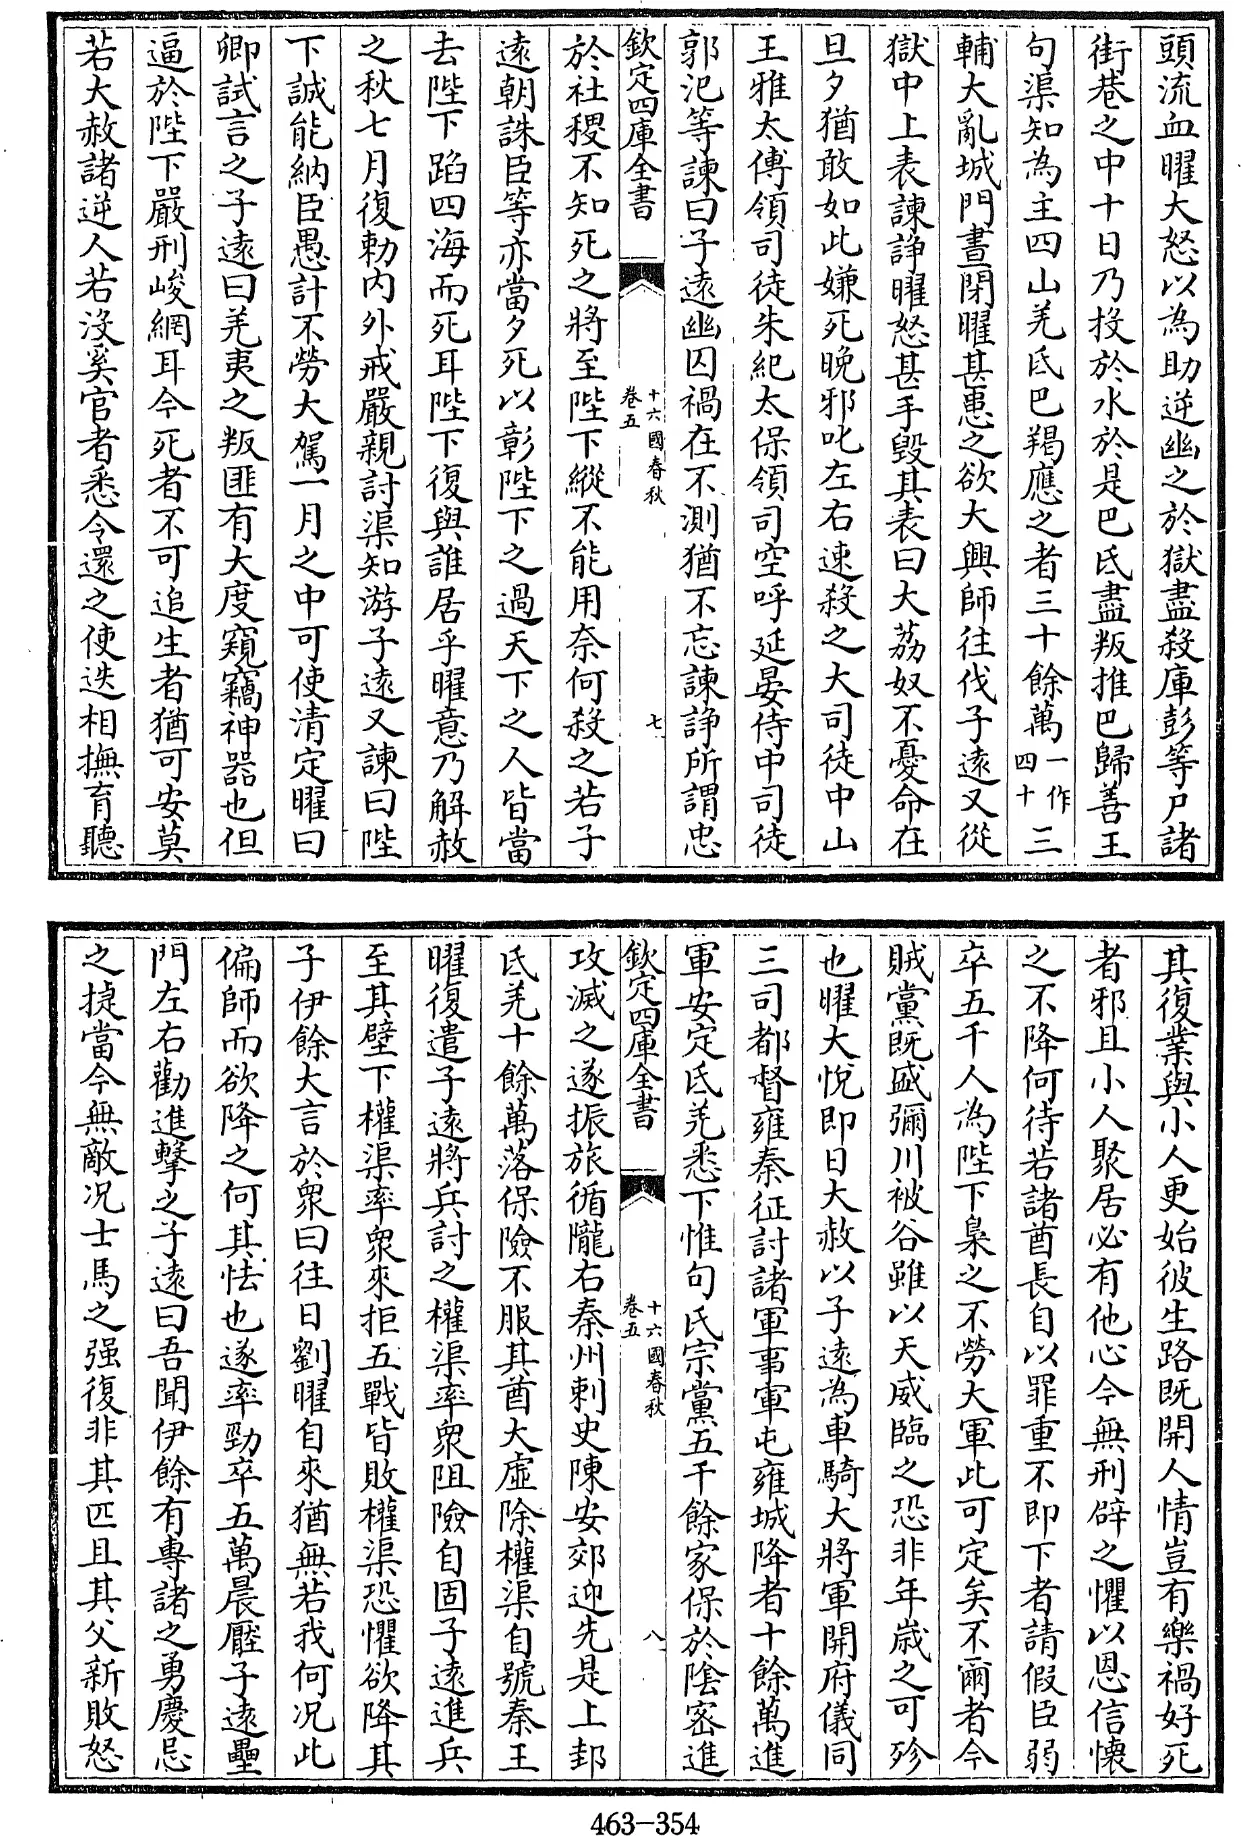 頭流血曜大怒以為助逆幽之於獄盡殺庫彭等尸諸
街巷之中十日乃投於水於是巴氐盡叛推巴歸善王
句渠知為主四山羌氐巴羯應之者三十餘萬一作四十三
輔大亂城門晝閉曜甚患之欲大興師往伐子遠又從
獄中上表諫諍曜怒甚手毀其表曰大荔奴不憂命在
旦夕猶敢如此嫌死晚邪叱左右速殺之大司徒中山
王雅太傅領司徒朱紀太保領司空呼延晏侍中司徒
郭汜等諫曰子遠幽囚禍在不測猶不忘諫諍所謂忠
欽定四庫全書 十六國春秋 卷五 七
於社稷不知死之將至陛下縱不能用奈何殺之若子
遠朝誅臣等亦當夕死以彰陛下之過天下之人皆當
去陛下蹈四海而死耳陛下復與誰居乎曜意乃解赦
之秋七月復勅內外戒嚴親討渠知游子遠又諫曰陛
下誠能納臣愚計不勞大駕一月之中可使清定曜曰
卿試言之子遠曰羌夷之叛匪有大度窺竊神器也但
逼於陛下嚴刑峻網耳今死者不可追生者猶可安莫
若大赦諸逆人若沒奚官者悉令還之使迭相撫育聽
其復業與小人更始彼生路既開人情豈有樂禍好死
者邪且小人聚居必有他心今無刑辟之懼以恩信懷
之不降何待若諸酋長自以罪重不即下者請假臣弱
卒五千人為陛下梟之不勞大軍此可定矣不爾者今
賊黨既盛彌川被谷雖以天威臨之恐非年歲之可殄
也曜大悅即日大赦以子遠為車騎大將軍開府儀同
三司都督雍秦征討諸軍事軍屯雍城降者十餘萬進
軍安定氐羌悉下惟句氏宗黨五千餘家保於陰密進
欽定四庫全書 十六國春秋 卷五 八
攻滅之遂振旅循隴右秦州刺史陳安郊迎先是上邽
氐羌十餘萬落保險不服其酋大虛除權渠自號秦王
曜復遣子遠將兵討之權渠率眾阻險自固子遠進兵
至其壁下權渠率眾來拒五戰皆敗權渠恐懼欲降其
子伊餘大言於眾曰往日劉曜自來猶無若我何况此
偏師而欲降之何其怯也遂率勁卒五萬晨壓子遠壘
門左右勸進擊之子遠曰吾聞伊餘有專諸之勇慶忌
之捷當今無敵况士馬之强復非其匹且其父新敗怒
463-354